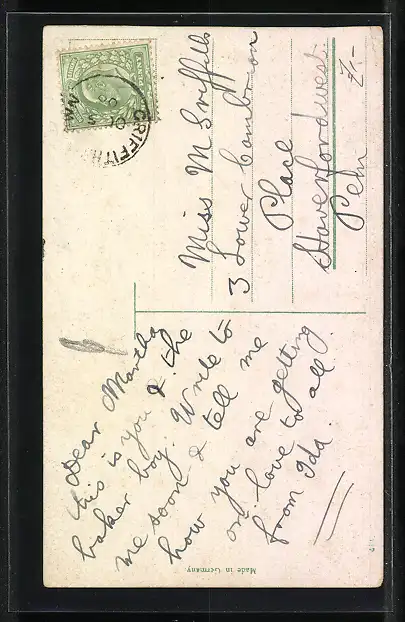 Dear Martha
this is you & the
baker boy. Write to
me soon & tell me
how you are getting
on. love to all
from Ida.
Miss M Griffills
3 Lower Cambrian
Place
Haverfordwest
Pem
7,-
GRIFFITH
08
Made in Germany